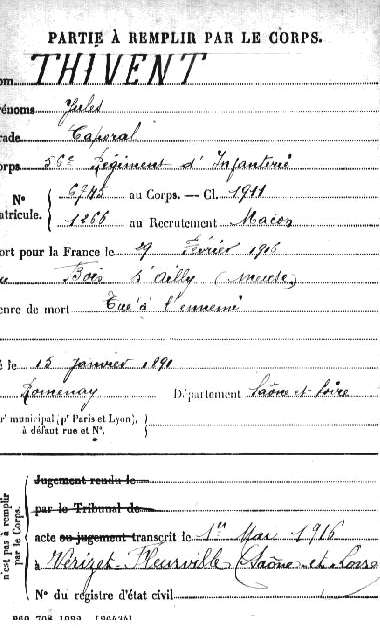 PARTIE À REMPLIR PAR LE CORPS.
om THIVENT
rénoms Jules
rade Caporal
orps 56e Régiment d'Infanterie
N° 6745 au Corps. — Cl. 1911
atricule. 1266 au Recrutement Macon
ort pour la France le 29 Février 1916
Bois d'ailly (meuse)
enre de mort Tué à l'ennemi
é le 15 Janvier 1891
Romenay Département Saône et Loire
rt municipal (pr Paris et Lyon),
à défaut rue et N°.
n'est pas à remplir
par le Corps.
Jugement rendu le
par le Tribunal de
acte ou jugement transcrit le 1er Mai 1916
à Vérizet-Fleurville (Saône et Loire
N° du registre d'état civil